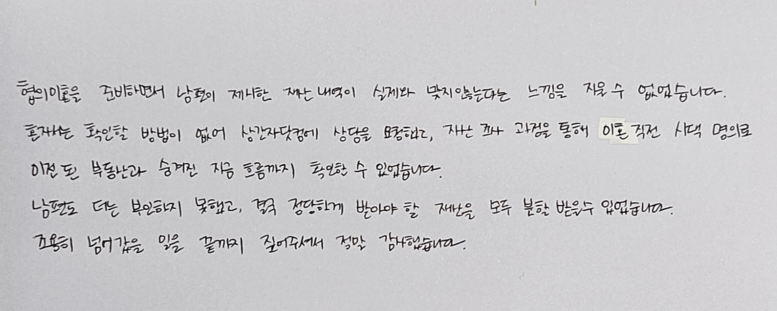 협의이혼을 준비하면서 남편이 제시한 재산 내역이 실제와 맞지않는다는 느낌을 지울 수 없었습니다.
혼자서는 확인할 방법이 없어 상간자닷컴에 상담을 요청했고, 재산 조사 과정을 통해 이혼 직전 시댁 명의로
이전 된 부동산과 숨겨진 자금 흐름까지 확인할 수 있었습니다.
남편도 더는 부인하지 못했고, 결국 정당하게 받아야 할 재산을 모두 분할 받을수 있었습니다.
조용히 넘어갔을 일을 끝까지 짚어주셔서 정말 감사했습니다.